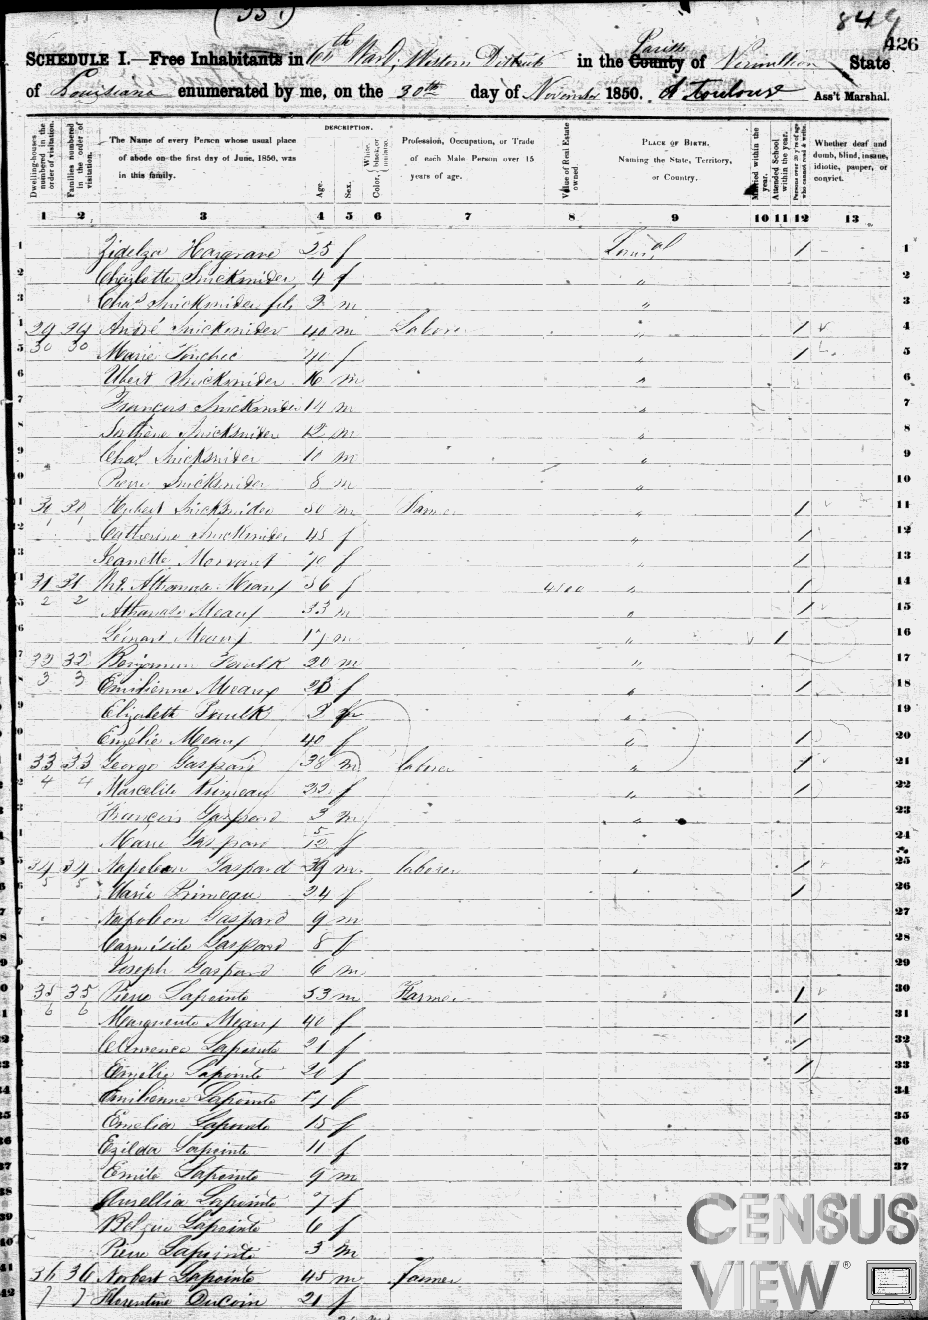 (35.)
84
426
SCHEDULE I.—Free Inhabitants in 6th Ward, Western District in the County Parish of Vermillion State
of Louisiana enumerated by me, on the 30th day of November 1850. Toulouse Ass't Marshal.
Dwelling-houses numbered in the order of visitation.
Families numbered in the order of visitation.
The Name of every Person whose usual place of abode on the first day of June, 1850, was in this family.
DESCRIPTION.
Age.
Sex.
Color, White, black, or mulatto.
Profession, Occupation, or Trade of each Male Person over 15 years of age.
Value of Real Estate owned.
PLACE OF BIRTH, Naming the State, Territory, or Country.
Married within the year.
Attended School within the year.
Persons over 20 y'rs of age who cannot read & write.
Whether deaf and dumb, blind, insane, idiotic, pauper, or convict.
1 2 3 4 5 6 7 8 9 10 11 12 13
1 Hargrave 25 f 1 1
2 Charlotte Smicksnider 4 f " 2
3 Chas Smicksnider fils 2 m " 3
29 29 André Smicksnider 40 m Laborer " 1 4
30 30 Marie f 1 5
6 Ubert Smicksnider 16 m " 6
7 François Smicksnider 14 m " 7
8 Smicksnider 12 m 8
9 Chas Smicksnider 10 m " 9
10 Pierre Smicksnider 8 m " 10
Hubert Smicksnider 50 m Farmer " 1 11
12 Catherine Smicksnider 45 f " 1 12
13 Jeanette Morvant f " 1 13
31 31 Athanase Meaux 56 f " 1 14
2 2 Athanase Meaux 33 m " 1 15
Léonard Meaux 17 m " 1 16
32 32 Benjamin Faulk 20 m " 17
3 3 Emilienne Meaux f " 1 18
Elizabeth Faulk 3 " 19
Emélie Meaux 40 f " 1 20
33 33 George Gaspard 38 m laborer " 1 21
4 4 Marcelite Primeau 22 f " 1 22
François Gaspard 3 m " 23
Marie Gaspard 5/12 f 24
34 34 Napoleon Gaspard 39 m laborer " 1 25
5 5 Marie Primeau 24 f 1 26
Napoleon Gaspard 9 m 27
Carmésile Gaspard 8 f 28
Joseph Gaspard 6 m 29
35 35 Pierre Lapointe 53 m Farmer 1 30
6 6 Marguerite Meaux 40 f 1 31
Clemence Lapointe 21 f 1 32
Emélie Lapointe 20 f 1 33
Emilienne Lapointe 17 f 34
Emelia Lapointe 15 f 35
Ezilda Lapointe 11 f 36
Emile Lapointe 9 m 37
Aurellia Lapointe 7 f
Lapointe 6 f
Pierre Lapointe 3 m
36 36 Norbert Lapointe 45 m farmer
7 7 Florentine DuCoin 21 f
CENSUS VIEW ®